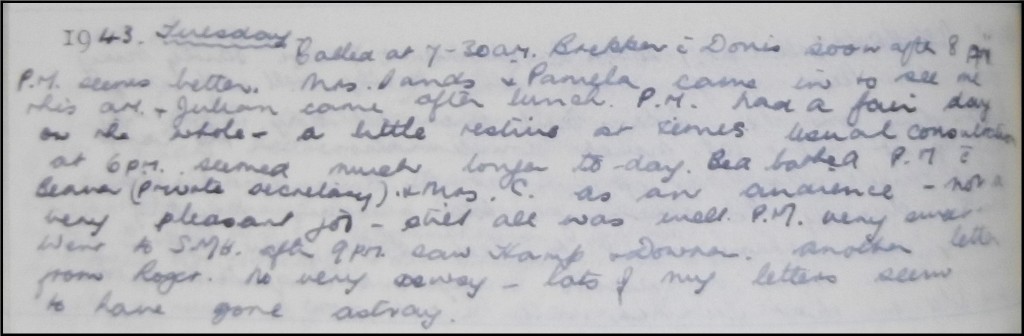 1943. Tuesday
Called at 7-30am. Brekker c̄ Doris soon after 8 am
P.M. seems better. Mrs. Sands & Pamela came in to see me
this am. - Julian came after lunch. P.M. had a fair day
on the whole - a little restive at times usual consultation
at 6pm. seemed much longer to-day. Bea bathed P.M c̄
Beaver (private secretary) & Mrs. C. as an audience - not a
very pleasant job - still all was well. P.M. very sweet
Went to S.M.H. after 9pm. saw Hamp & Downer. Another letter
from Roger. He very - lots of my letters seem
to have gone astray.